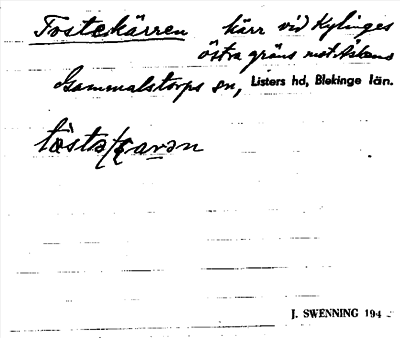 Tostekärren kärr vid Kylinges
östra gräns mot Askens
Gammalstorps sn, Listers hd, Blekinge län.
J. SWENNING 194